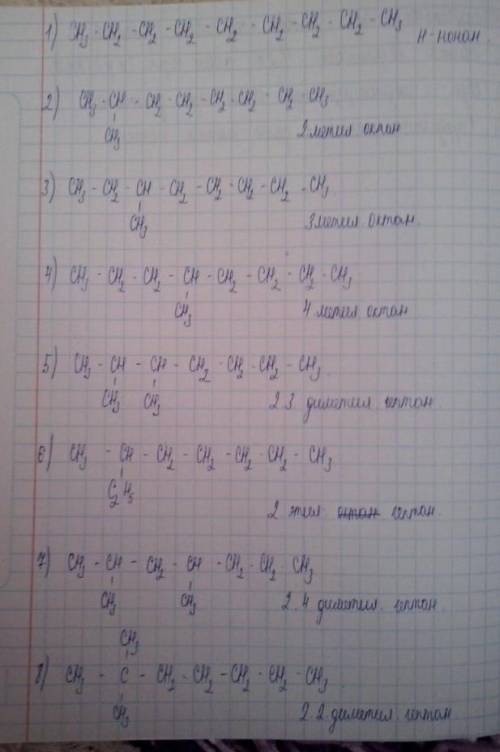 1) CH₃ - CH₂ - CH₂ - CH₂ - CH₂ - CH₂ - CH₂ - CH₂ - CH₃
н-нонан.
2) CH₃ - CH - CH₂ - CH₂ - CH₂ - CH₂ - CH₂ - CH₃
CH₃
2 метил октан
3) CH₃ - CH₂ - CH - CH₂ - CH₂ - CH₂ - CH₂ - CH₃
CH₃
3 метил октан.
4) CH₃ - CH₂ - CH₂ - CH - CH₂ - CH₂ - CH₂ - CH₃
CH₃
4 метил октан
5) CH₃ - CH - CH - CH₂ - CH₂ - CH₂ - CH₃
CH₃ CH₃
2 3 диметил гептан.
6) CH₃ - CH - CH₂ - CH₂ - CH₂ - CH₂ - CH₃
C₂H₅
2 этил октан гептан.
7) CH₃ - CH - CH₂ - CH - CH₂ - CH₂ - CH₃
CH₃ CH₃
2.4 диметил гептан.
CH₃
8) CH₃ - C - CH₂ - CH₂ - CH₂ - CH₂ - CH₃
CH₃
2.2 диметил гептан.